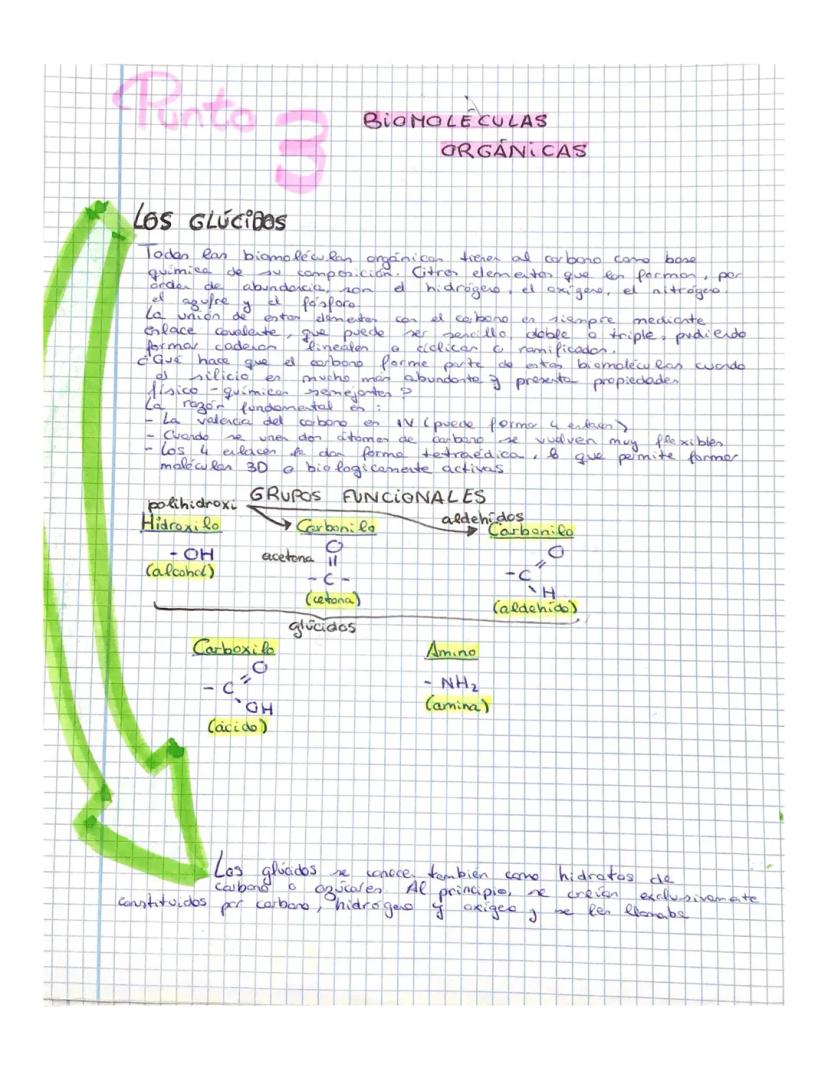 Punto 3
BIOMOLÉCULAS
ORGÁNICAS
LOS GLÚCIDOS
Todas las biomoléculas orgánicas tienen al carbono como base
química de su composición. Citros elementos que las forman, por
orden de abundancia, son el hidrógeno, el oxígeno, el nitrógeno
el azufre y el fósforo
La unión de estos elementos con el carbono es siempre mediante
enlace covalente, que puede ser sencillo, doble o triple, pudiendo
formar cadenas lineales o cíclicas o ramificadas.
¿Qué hace que el carbono forme parte de estas biomoléculas cuando
el silicio es mucho más abundante y presenta propiedades
físico-químicas semejantes?
La razón fundamental es:
- La valencia del carbono es IV (puede formar 4 enlaces)
- Cuando se unen dos átomos de carbono se vuelven muy flexibles
- Los 4 enlaces dan forma tetraédica, lo que permite formar
moléculas 3D o biologicamente activas
GRUPOS FUNCIONALES
polihidroxi aldehídos
Hidroxilo Carbonilo Carbonilo
- OH acetona O O
(alcohol) - C - - C H
(cetona) (aldehído)
glúcidos
Carboxilo Amino
O
- C - NH₂
OH (amina)
(ácido)
Los glúcidos se conocen también como hidratos de
carbono o azúcares. Al principio, se creían exclusivamente
constituidos por carbono, hidrógeno y oxígeo y se les llamaba